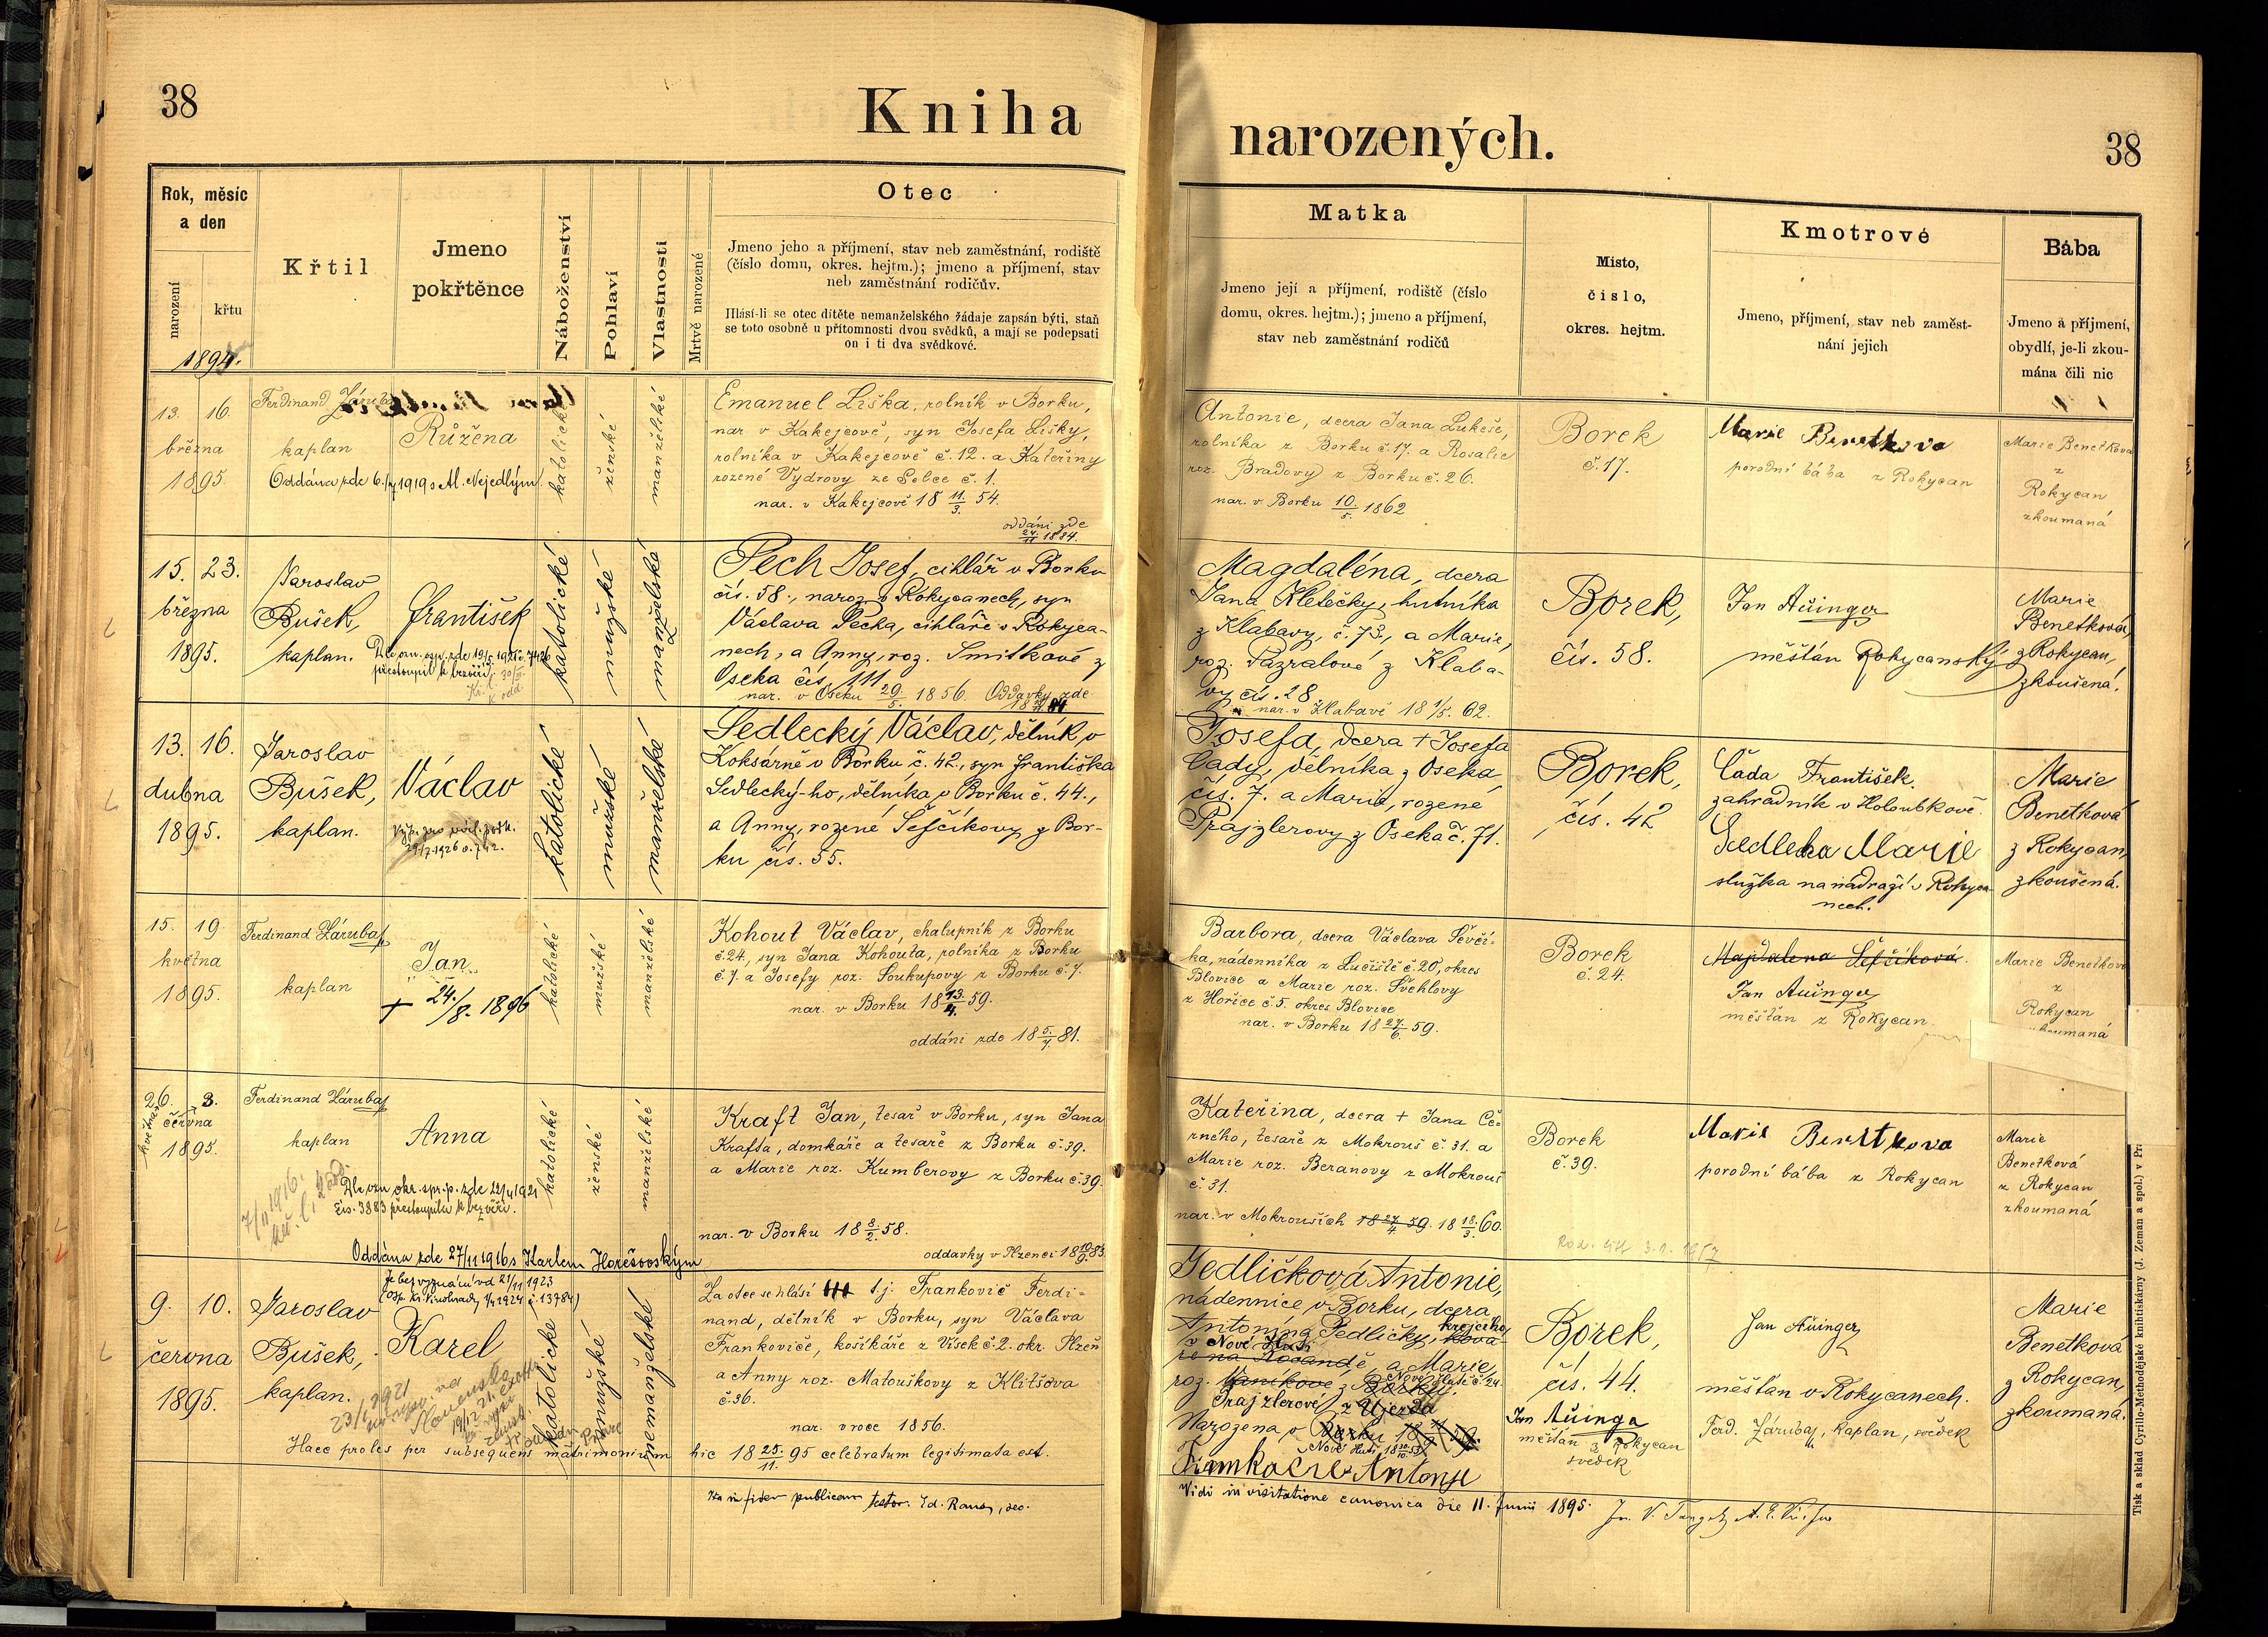 38
Kniha
narozených.
38
Rok, měsíc
a den
narození
křtu
1894.
Křtil
Jmeno
pokřtěnce
Náboženství
Pohlaví
Vlastnosti
Mrtvě narozené
Otec
Jmeno jeho a příjmení, stav neb zaměstnání, rodiště
(číslo domu, okres. hejtm.); jmeno a příjmení, stav
neb zaměstnání rodičův.
Hlásí-li se otec dítěte nemanželského žádaje zapsán býti, staň
se toto osobně u přítomnosti dvou svědků, a mají se podepsati
on i ti dva svědkové.
Matka
Jmeno její a příjmení, rodiště (číslo
domu, okres. hejtm.); jmeno a příjmení,
stav neb zaměstnání rodičů
Misto,
číslo,
okres. hejtm.
Kmotrové
Jmeno, příjmení, stav neb zaměst-
nání jejich
Bába
Jmeno a příjmení,
obydlí, je-li zkou-
mána čili nic
13. 16.
března
1895.
Ferdinand Záruba
kaplan
Růžena
Oddána zde 6./7 1919 s Al. Nejedlým.
katolické
ženské
manželské
Emanuel Liška, rolník v Borku,
nar v Kakejcově, syn Josefa Lišky,
rolníka v Kakejcově č. 12. a Kateřiny
rozené Vydrovy ze Sebce č. 1.
nar. v Kakejcově 18 11/3. 54.
oddáni zde
24./11 1884.
Antonie, dcera Jana Lukeše,
rolníka z Borku č. 17. a Rosalie
roz. Bradovy z Borku č. 26.
nar. v Borku 10/5. 1862
Borek
č. 17.
Marie Benetkova
porodní bába z Rokycan
Marie Benetkova
z
Rokycan
zkoumaná
15. 23.
března
1895.
Jaroslav
Bušek,
kaplan.
František
přestoupil k bezvěří
katolické
mužské
manželské
Pech Josef, cihlář v Borku
čís. 58., naroz. v Rokycanech, syn
Václava Pecha, cihláře v Rokyca-
nech, a Anny, roz. Smitkové z
Oseka čís. 111.
nar. v Oseku 29/5. 1856. Oddavky zde
Magdaléna, dcera
Jana Kletečky, hutníka
z Klabavy, č. 73., a Marie,
roz. Pazralové z Klaba-
vy čís. 28.
nar. v Klabavě 18 1/5. 62.
Borek,
čís. 58.
Jan Aüinger
měšťan Rokycanský
Marie
Benetková,
z Rokycan,
zkoušená.
13. 16.
dubna
1895.
Jaroslav
Bušek,
kaplan.
Václav
29/7 1926
katolické
mužské
manželské
Sedlecký Václav, dělník v
Koksárně v Borku č. 42., syn Františka
Sedlecký-ho, dělníka v Borku č. 44.,
a Anny, rozené Šefčíkovy z Bor-
ku čís. 55.
Josefa, dcera + Josefa
Čady, dělníka z Oseka
čís. 7. a Marie, rozené
Prajzlerovy z Oseka č. 71.
Borek,
čís. 42
Čada František
zahradník v Holoubkově.
Sedlecka Marie
služka na nádraží v Rokyca-
nech.
Marie
Benetková
z Rokycan,
zkoušená.
15. 19.
května
1895.
Ferdinand Záruba
kaplan
Jan
+ 24./8. 1896
katolické
mužské
manželské
Kohout Václav, chalupník z Borku
č. 24, syn Jana Kohouta, rolníka z Borku
č. 7. a Josefy roz. Soukupovy z Borku č. 7.
nar. v Borku 18 13/4. 59.
oddáni zde 18 5./7. 81.
Barbora, dcera Václava Ševčí-
ka, nádenníka z Lučiště č. 20, okres
Blovice a Marie roz. Švehlovy
z Hořice č. 5. okres Blovice
nar. v Borku 18 27/6. 59.
Borek
č. 24.
Magdalena Šefčíková.
Jan Aüinger
měšťan z Rokycan
Marie Benetkova
z
Rokycan
26. 3.
května
června
1895.
Ferdinand Záruba
kaplan
Anna
7/11 1916.
Dle ozn. okr. spr. p. zde 22/4 1921
čís. 3883 přestoupila k bezvěří.
Oddána zde 27/11 1916 s Karlem Horešovským
katolické
ženské
manželské
Kraft Jan, tesař v Borku, syn Jana
Krafta, domkáře a tesaře z Borku č. 39.
a Marie roz. Kumberovy z Borku č. 39.
nar. v Borku 18 8/2. 58.
oddavky v Plzenci 18 10/9. 83.
Kateřina, dcera + Jana Če-
rného, tesaře z Mokrouš č. 31. a
Marie roz. Beranovy z Mokrouš
č. 31.
nar. v Mokrouších 18 27/4 59. 18 18/3. 60.
Borek
č. 39.
Marie Benetkova
porodní bába z Rokycan
Marie
Benetková
z Rokycan
zkoumaná
9. 10.
června
1895.
Jaroslav
Bušek,
kaplan.
Je bez vyznání od 21/11 1923
Karel
23/1 1921
katolické
mužské
nemanželské
Za otce se hlásí t. j. Frankovič Ferdi-
nand, dělník v Borku, syn Václava
Frankoviče, košíkáře z Vísek č. 2. okr. Plzeň
a Anny roz. Matouškovy z Klitšova
č. 36.
nar. v roce 1856.
Haec proles per subsequens matrimonium hic 18 25./11. 95 celebratum legitimata est.
Ita in fidem publicam testor:
Jedličková Antonie,
nádennice v Borku, dcera
Antonína Jedličky, krejčího
v Nové Huti
a Marie,
roz.
Prajzlerové z Újezda
Narozena v Borku
Nové Huti,
Antonie
Borek,
čís. 44.
Jan Aüinger
měšťan v Rokycanech.
Jan Aüinga
měšťan z Rokycan
svědek
Ferd. Záruba, kaplan, svědek
Marie
Benetková
z Rokycan,
zkoumaná.
Vidi in visitatione canonica die 11. Junii 1895.
Tisk a sklad Cyrillo-Methodějské knihtiskárny (J. Zeman a spol.) v Pr